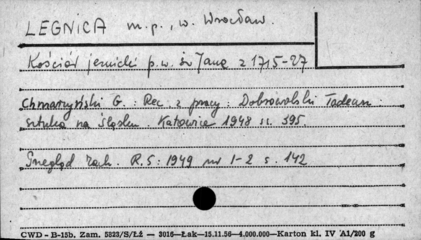 LEGNICA m.p., w. Wrocław.
Kościół jezuicki p.w. św Jana z 1715-27
Chmarzyński G. : Rec. z pracy : Dobrowolski Tadeusz :
sztuka na Śląsku. Katowice 1948 s. 395.
Przegląd Zach. R.5: 1949 nr 1-2 s. 142
CWD - B-15b. Zam. 5823/S/Łż — 3016—Łak—15.11.56—4.000.000—Karton kl. IV A1/200 g